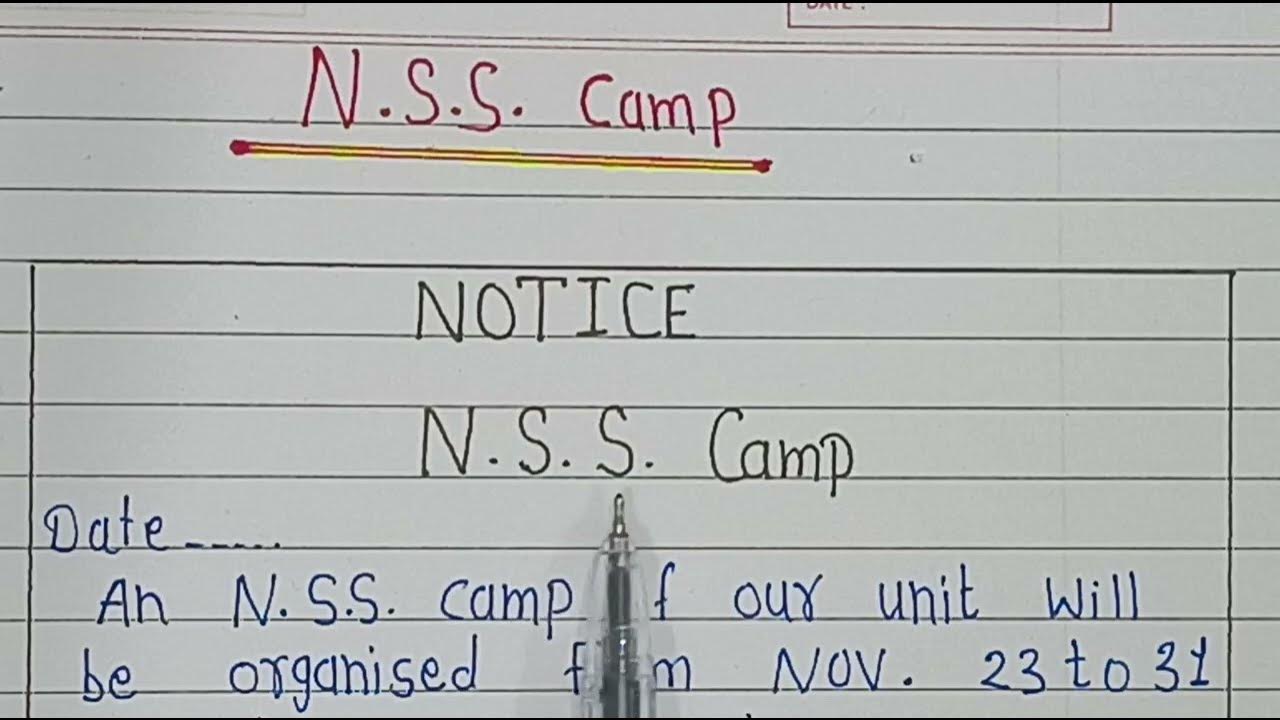 DATE :
N.S.S. Camp
NOTICE
N.S.S. Camp
Date......
An N.S.S. camp our unit will
be organised NOV. 23 to 31